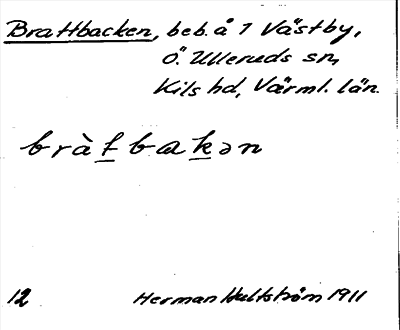 Brattbacken, beb. å 1 Västby,
Ö. Ulleruds sn,
Kils hd, Värml. län.
bràt̲bak̲ən
12 Herman Hultström 1911